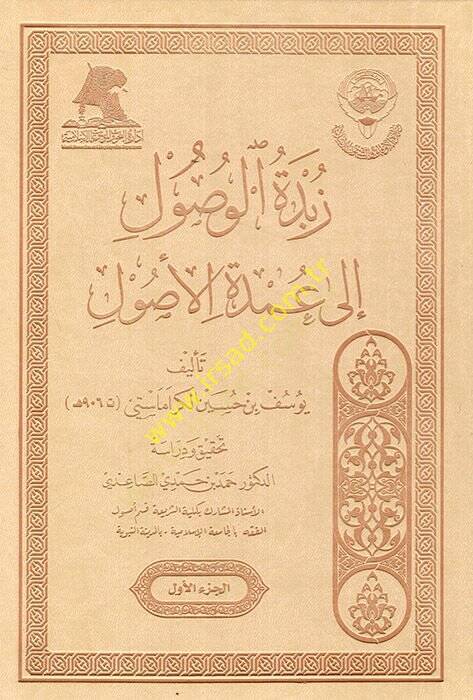 زُبْدَةُ الْوُصُولِ
إِلَى عُمْدَةِ الْأُصُولِ
تأليف
يُوسُف بن حُسَيْن الكرَامَاسْتي (ت ٩٠٦هـ)
تحقيق ودراسة
الدكتور حمد بن حمدي الصاعدي
الأستاذ المشارك بكلية الشريعة قسم أصول
الفقه بالجامعة الإسلامية - بالمدينة النبوية
الجزء الأول
www.irsad.com.tr